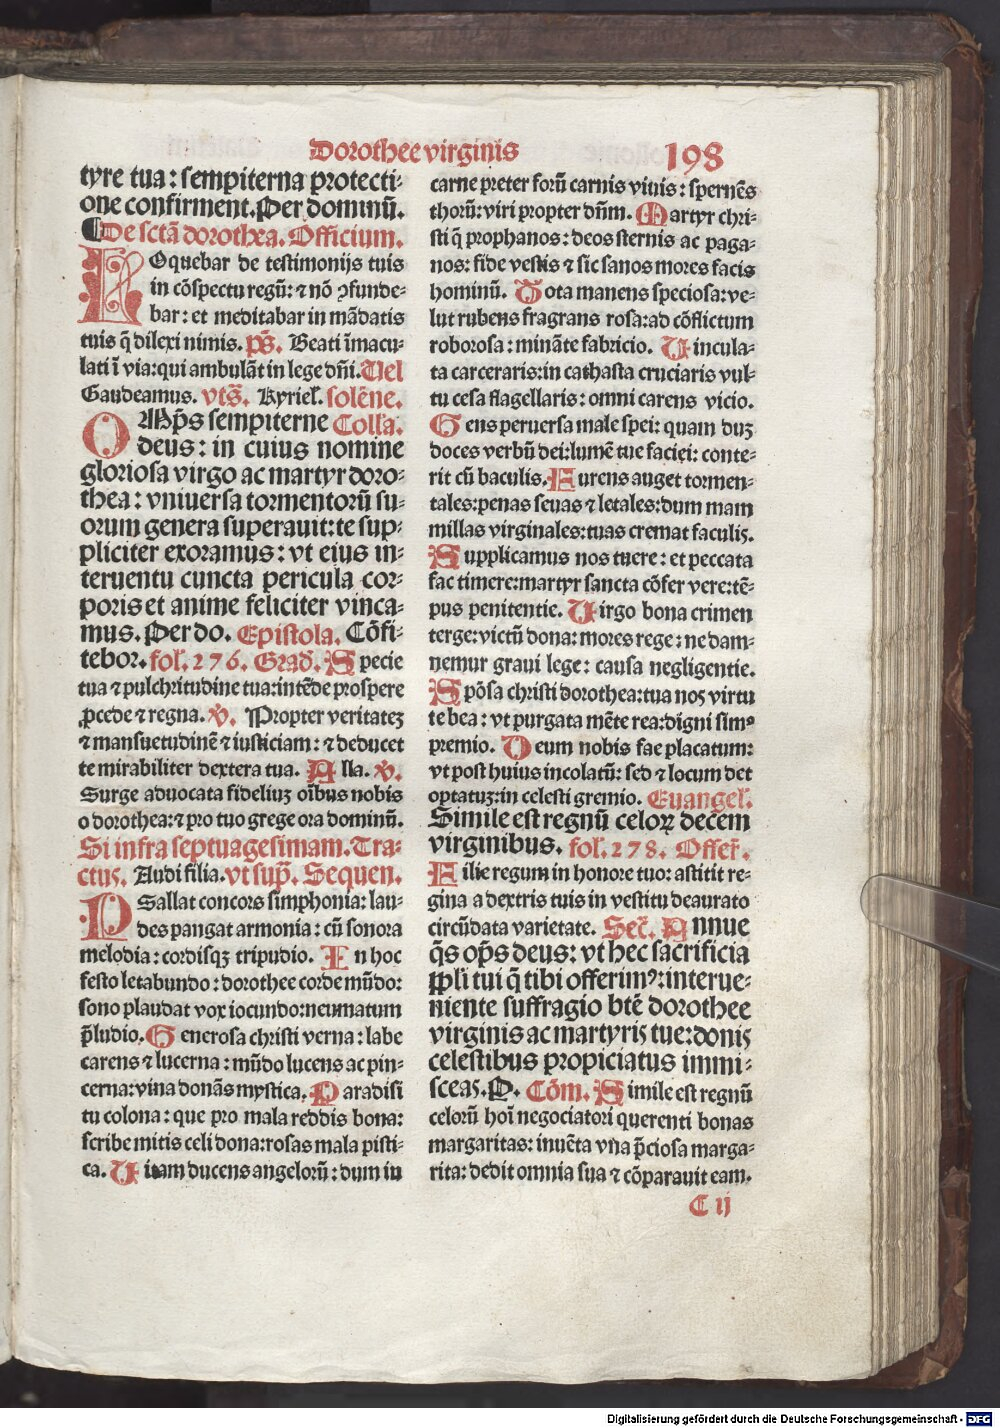 Dorothee virginis 198
tyre tua: sempiterna protecti-
one confirment. Per dominū.
De sctā dorothea. Officium.
LOquebar de testimonijs tuis
in cōspectu regū: ⁊ nō ꝯfunde-
bar: et meditabar in mādatis
tuis q̄ dilexi nimis. ps̄. Beati īmacu-
lati ī via: qui ambulāt in lege dn̄i. Uel
Gaudeamus. vts̄. Kyriel. solēne.
OMp̄s sempiterne Coll'a.
deus: in cuius nomine
gloriosa virgo ac martyr doro-
thea: vniuersa tormentorū su-
orum genera superauit: te sup-
pliciter exoramus: vt eius in-
teruentu cuncta pericula cor-
poris et anime feliciter vinca-
mus. Per do. Epistola. Cōfi-
tebor. fol. 276. Grad. Specie
tua ⁊ pulchritudine tua: intēde prospere
ꝓcede ⁊ regna. v̄. Propter veritatez
⁊ mansuetudinē ⁊ iusticiam: ⁊ deducet
te mirabiliter dextera tua. Alla. v̄.
Surge aduocata fideliuz oībus nobis
o dorothea: ⁊ pro tuo grege ora dominū.
Si infra septuagesimam. Tra-
ctus. Audi filia. vt sup̄. Sequen.
PSallat concors simphonia: lau-
des pangat armonia: cū sonora
melodia: cordisqꝫ tripudio. In hoc
festo letabundo: dorothee corde mūdo:
sono plaudat vox iocundo: neumatum
p̄ludio. Generosa christi verna: labe
carens ⁊ lucerna: mūdo lucens ac pin-
cerna: vina donās mystica. Paradisi
tu colona: que pro mala reddis bona:
scribe mitis celi dona: rosas mala pisti-
ca. Uitam ducens angelorū: dum iu
carne preter forū carnis viuis: spernēs
thorū: viri propter dn̄m. Martyr chri-
sti q̄ prophanos: deos sternis ac paga-
nos: fide vestis ⁊ sic sanos mores facis
hominū. Tota manens speciosa: ve-
lut rubens fragrans rosa: ad cōflictum
roborosa: mināte fabricio. Uincula-
ta carceraris: in cathasta cruciaris vul-
tu cesa flagellaris: omni carens vicio.
Gens peruersa male spei: quam duz
doces verbū dei: lumē tue faciei: conte-
rit cū baculis. Furens auget tormen-
tales: penas seuas ⁊ letales: dum mam
millas virginales: tuas cremat faculis.
Supplicamus nos tuere: et peccata
fac timere: martyr sancta cōfer vere: tē-
pus penitentie. Uirgo bona crimen
terge: victū dona: mores rege: ne dam-
nemur graui lege: causa negligentie.
Spōsa christi dorothea: tua noz virtu
te bea: vt purgata mēte rea: digni simꝰ
premio. Deum nobis fac placatum:
vt post huius incolatū: sed ⁊ locum det
optatuz: in celesti gremio. Euangel.
Simile est regnū celoꝝ decem
virginibus. fol. 278. Offer̄.
Filie regum in honore tuo: astitit re-
gina a dextris tuis in vestitu deaurato
circūdata varietate. Sec̄. Annue
q̄s op̄s deus: vt hec sacrificia
p̄pli tui q̄ tibi offerimꝰ: interue-
niente suffragio btē dorothee
virginis ac martyris tue: donis
celestibus propiciatus immi-
sceas. P. Cōm. Simile est regnū
celorū hoī negociatori querenti bonas
margaritas: inuēta vna p̄ciosa marga-
rita: dedit omnia sua ⁊ cōparauit eam.
C ij
Digitalisierung gefördert durch die Deutsche Forschungsgemeinschaft - DFG